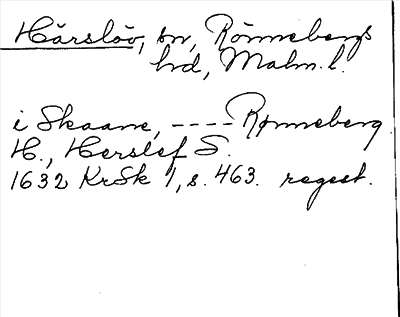 Härslöv, sn, Rönnebergs
hd, Malm. l.
i Skaane, ---- Rønneberg
H., Herslef S.
1632 KrSk 1, s. 463. regest.